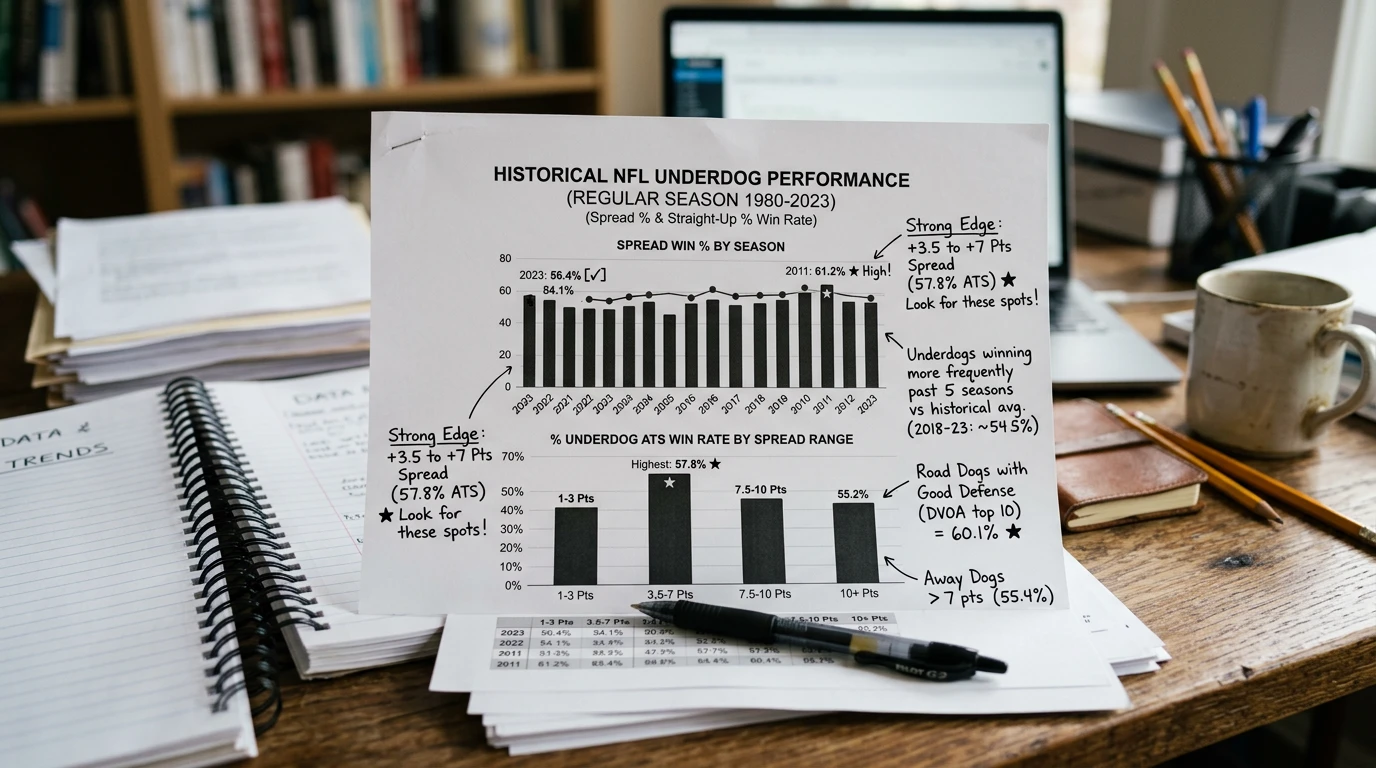 HISTORICAL NFL UNDERDOG PERFORMANCE
(REGULAR SEASON 1980-2023)
(Spread % & Straight-Up % Win Rate)
SPREAD WIN % BY SEASON
80
60
40
20
0
2023: 56.4% [✓]
84.1%
2011: 61.2% ★ High!
2022 2021 2022 2005 2016 2017 2018 2019 2010 2011 2012 2023
Strong Edge:
+3.5 to +7 Pts
Spread
(57.8% ATS) ★
Look for these spots!
Underdogs winning
more frequently
past 5 seasons
vs historical avg.
(2018-23: ~54.5%)
Strong Edge:
+3.5 to +7 Pts
Spread
(57.8% ATS)
★ Look for
these spots!
% UNDERDOG ATS WIN RATE BY SPREAD RANGE
70%
50%
40%
30%
20%
10%
0%
1-3 Pts
Highest: 57.8% ★
7.5-10 Pts
55.2%
1-3 Pts 3.5-7 Pts 7.5-10 Pts 10+ Pts
Road Dogs with
Good Defense
(DVOA top 10)
= 60.1% ★
Away Dogs
> 7 pts (55.4%)
DATA &
TRENDS
DATA
1-3 Pts 3.5-7 Pts 7.5-10 Pts 10+ Pts
2023 50.4% 54.1%
2022 54.1%
2011 47.9% 57.7%
2011 61.2% 60.4%
PILOT G2